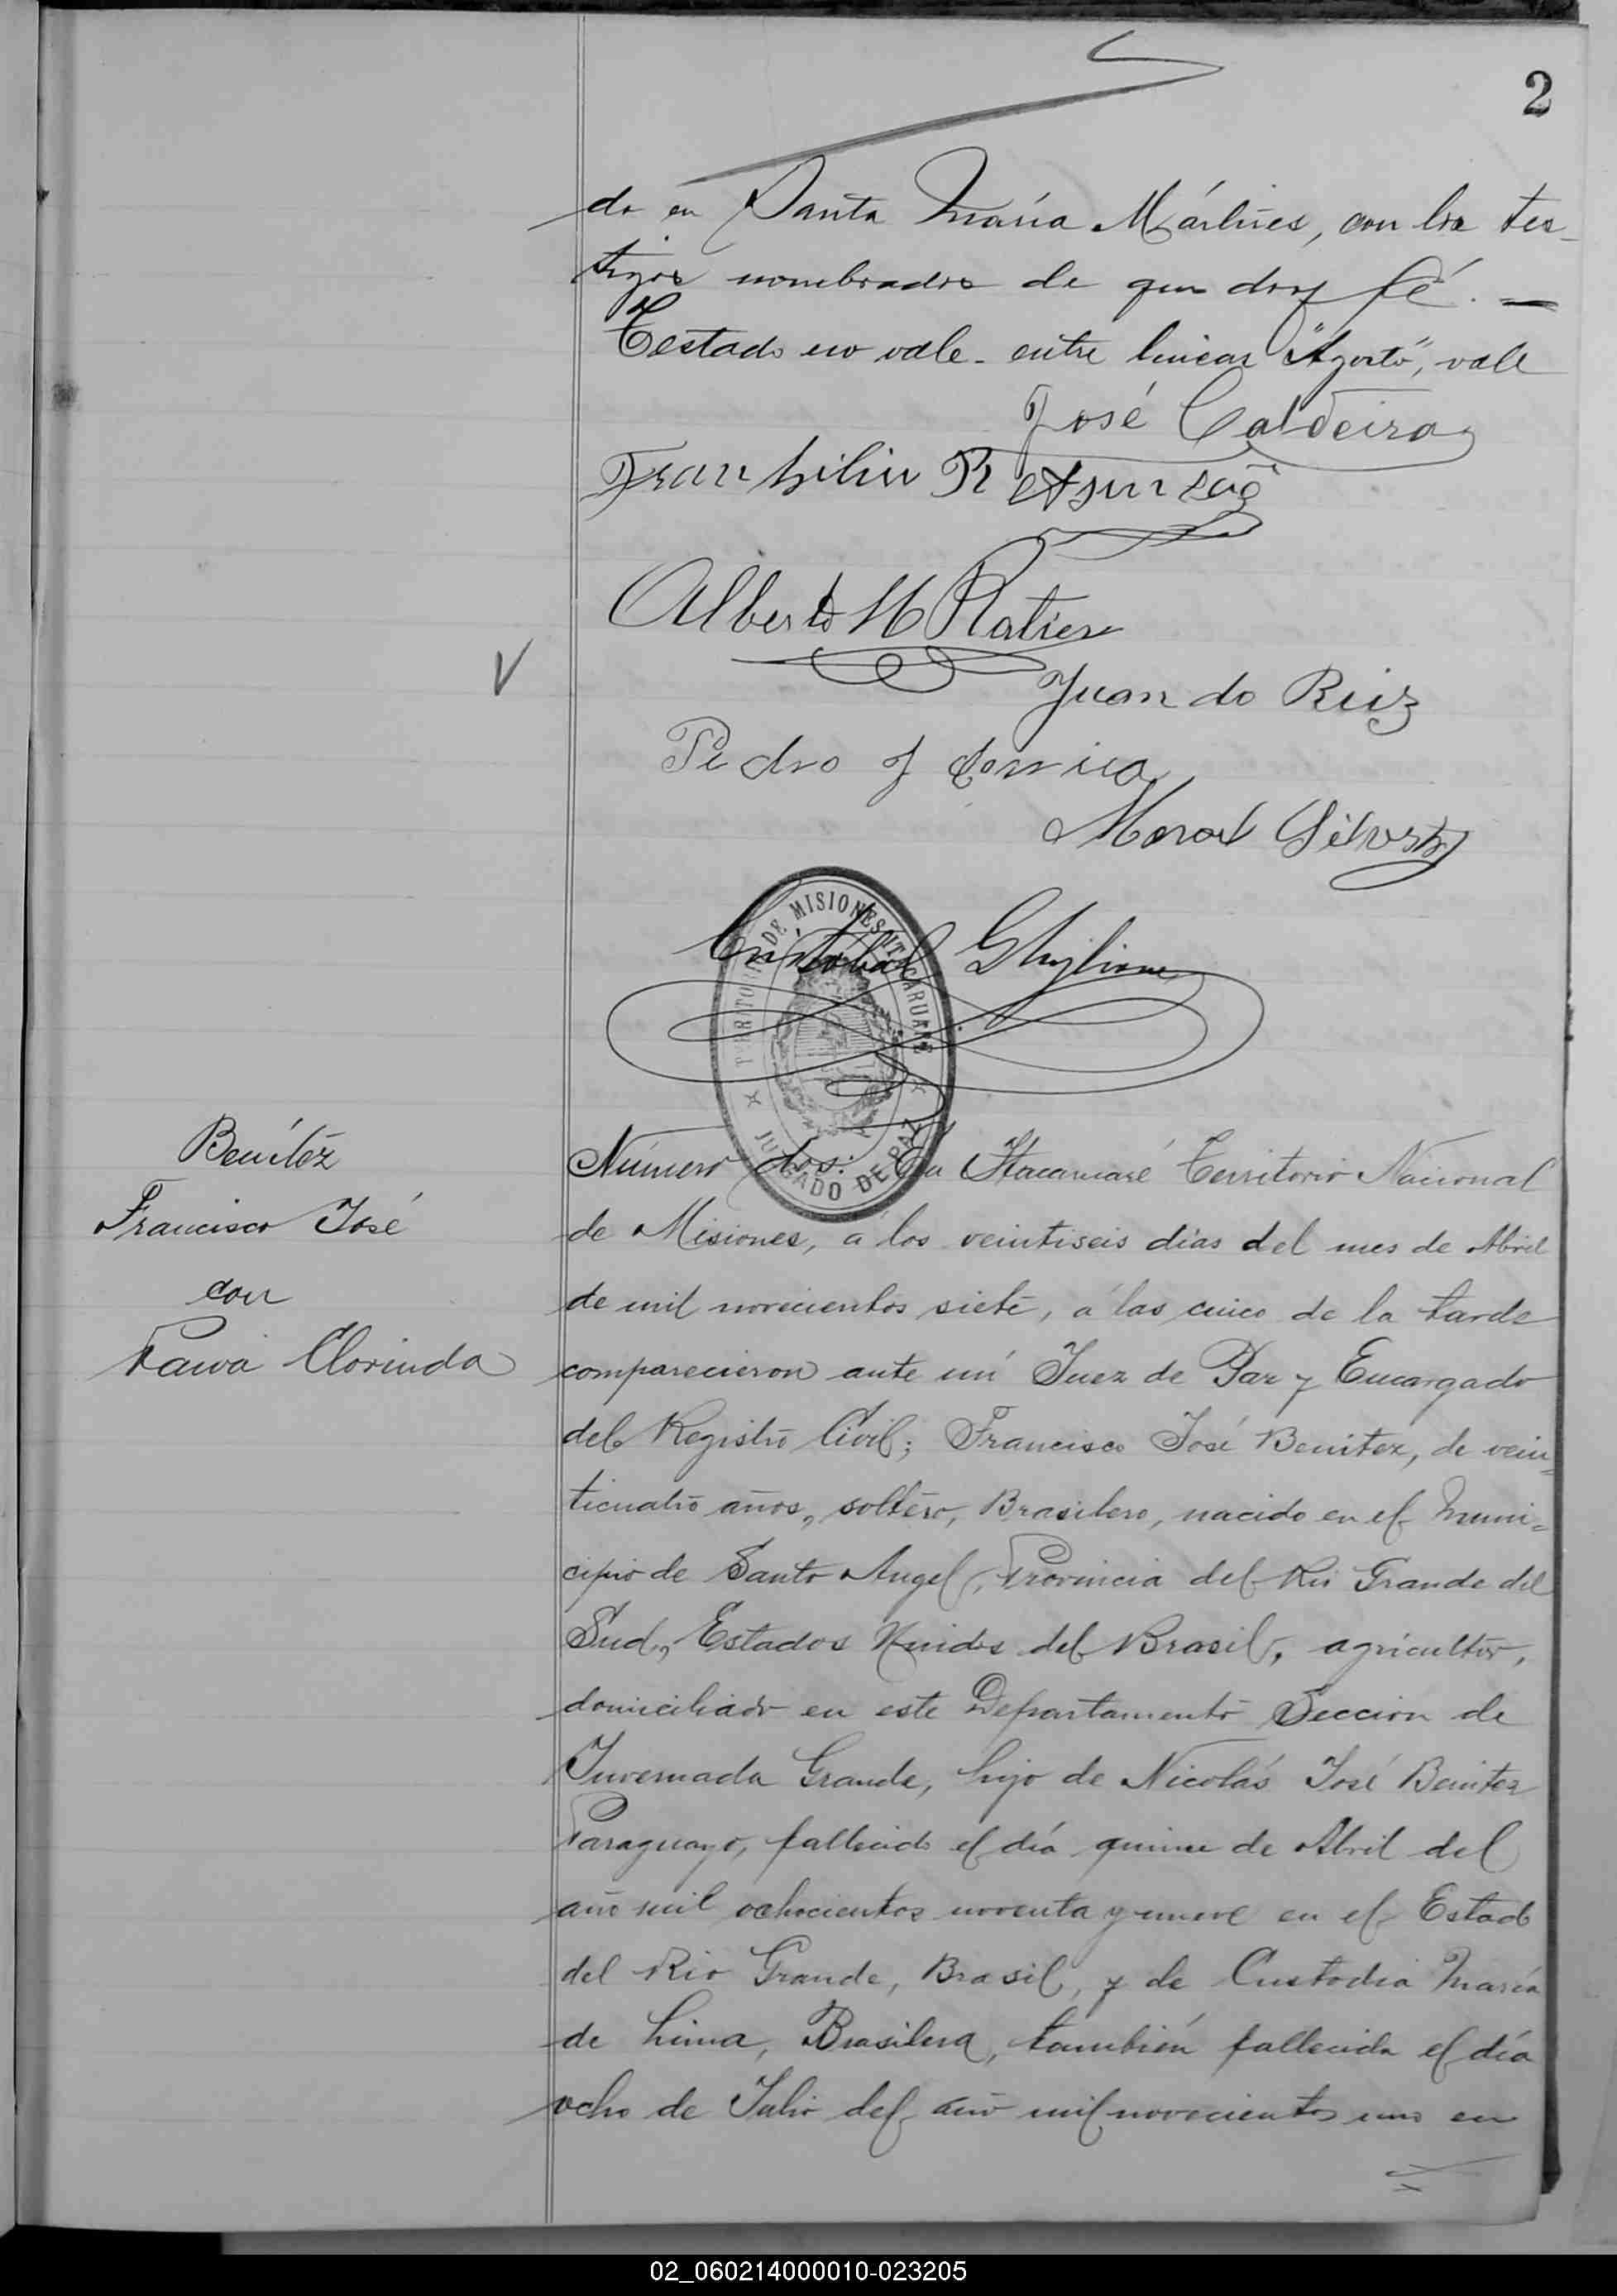 2
do en Santa María Mártires, con los tes-
tigos nombrados de que doy fé. —
Testado no vale - entre lineas "Agosto", vale
José Caldeira
Alberto M Ratier
Juan do Ruiz
Pedro J
Cristobal Ghiglione
TERRITORIO DE MISIONES ITACARUARE
JUZGADO DE PAZ
Benítez
Francisco José
con
Paiva Clorinda
Número dos: En Itacaruaré Territorio Nacional
de Misiones, a los veintiseis dias del mes de Abril
de mil novecientos siete, á las cinco de la tarde
comparecieron ante mí Juez de Paz y Encargado
del Registro Civil; Francisco José Benitez, de vein=
ticuatro años, soltero, Brasilero, nacido en el Muni=
cipio de Santo Angel, Provincia del Rio Grande del
Sud, Estados Unidos del Brasil, agricultor,
domiciliado en este Departamento Seccion de
Invernada Grande, hijo de Nicolás José Benitez
Paraguayo, fallecido el día quince de Abril del
año mil ochocientos noventa y nueve en el Estado
del Rio Grande, Brasil, y de Custodia María
de Lima, Brasilera, también fallecida el día
ocho de Julio del año mil novecientos uno en
02_060214000010-023205